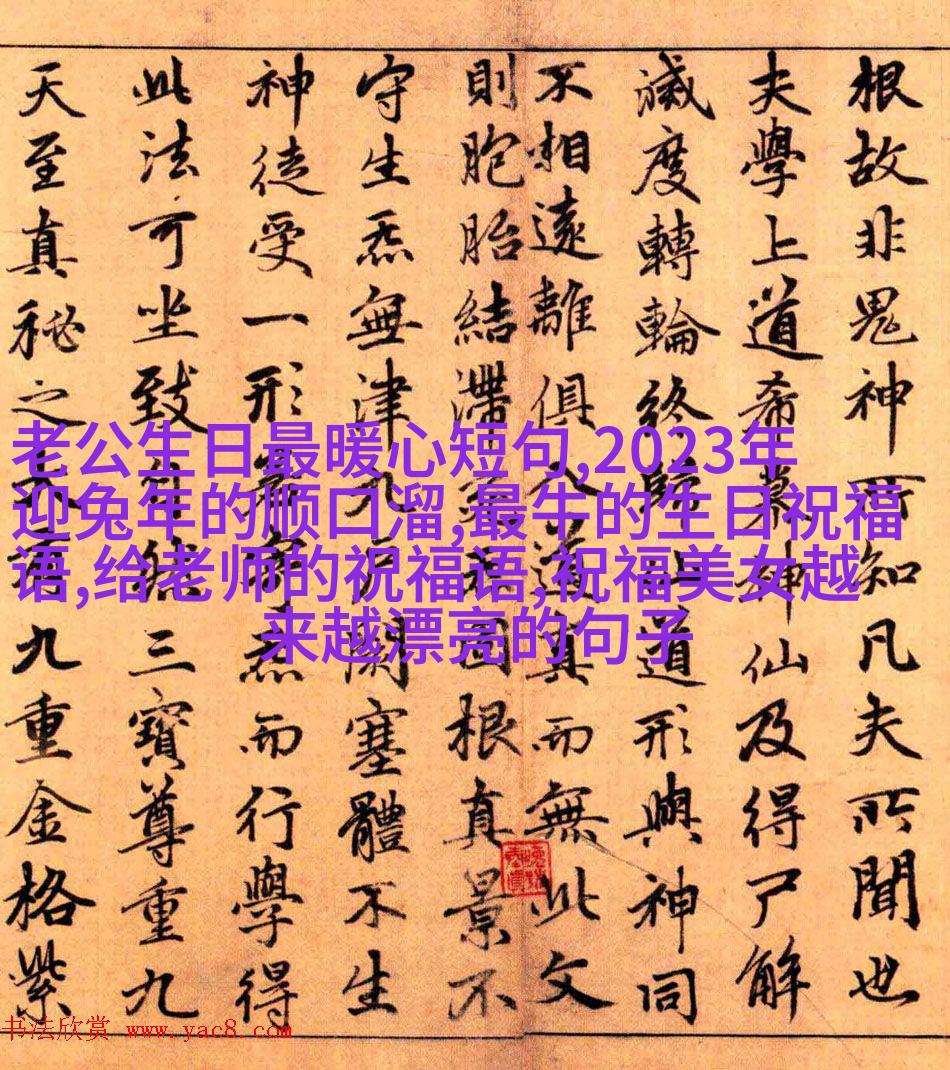 根故非鬼神所知凡夫所聞也
夫學上道希慕神仙及得尸解
滅度轉輪終歸道形與神同
不相遠離俱入道真而無此文
則胞胎結滯死固根真景不
守生炁無津九戶閉塞體不生
神徒受一形若炁而行學得
此法可坐致自然三寶尊重九
天至真秘之有九重金格紫
老公生日最暖心短句,2023年
迎兔年的顺口溜,最牛的生日祝福
语,给老师的祝福语,祝福美女越
来越漂亮的句子
书法欣赏 www.yac8.com